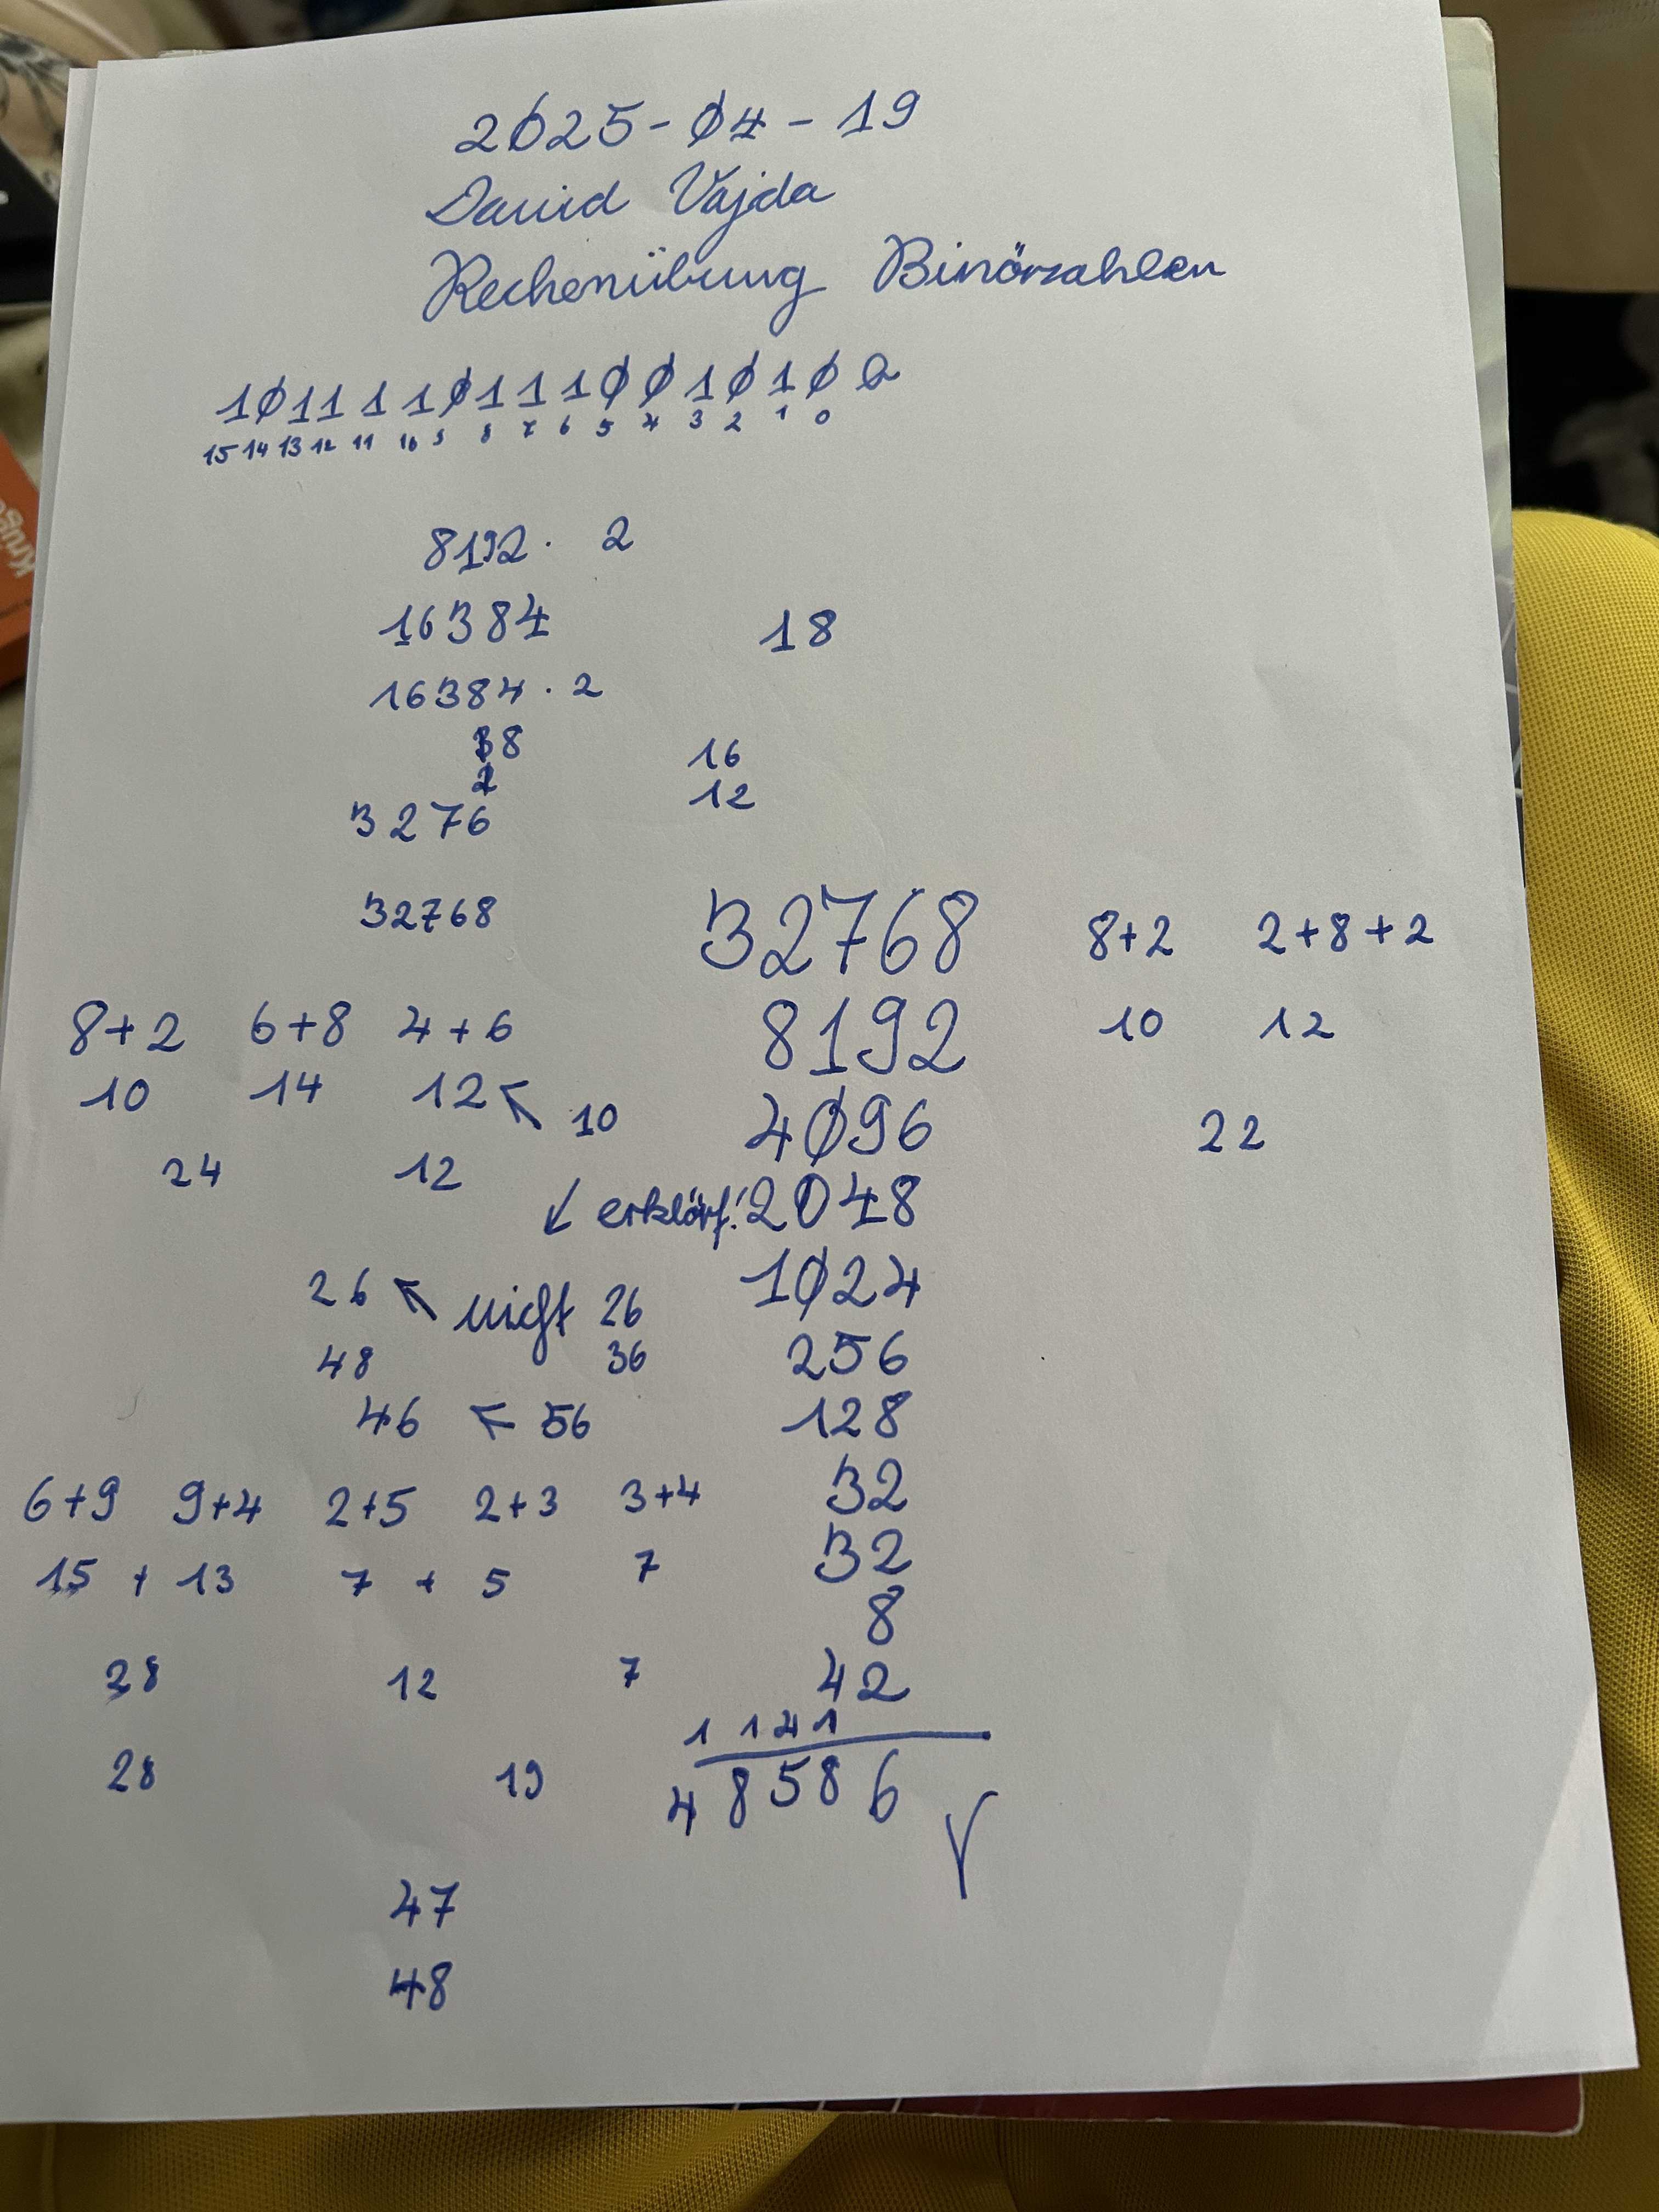 2025-04-19
David Vajda
Rechenübung Binärzahlen
1011110111001010 2
15 14 13 12 11 10 9 8 7 6 5 4 3 2 1 0
8192 · 2
16384 18
16384 · 2
18 16
2 12
3276
32768 32768 8+2 2+8+2
8+2 6+8 4+6 8192 10 12
10 14 12 ↖ 10 4096 22
24 12
↙ erklärt! 2048
26 ↖ nicht 26 1024
48 36 256
46 ← 56 128
6+9 9+4 2+5 2+3 3+4 32
15 + 13 7 + 5 7 32
8
28 12 7 42
1 1 2 1
28 19 48586
47
48